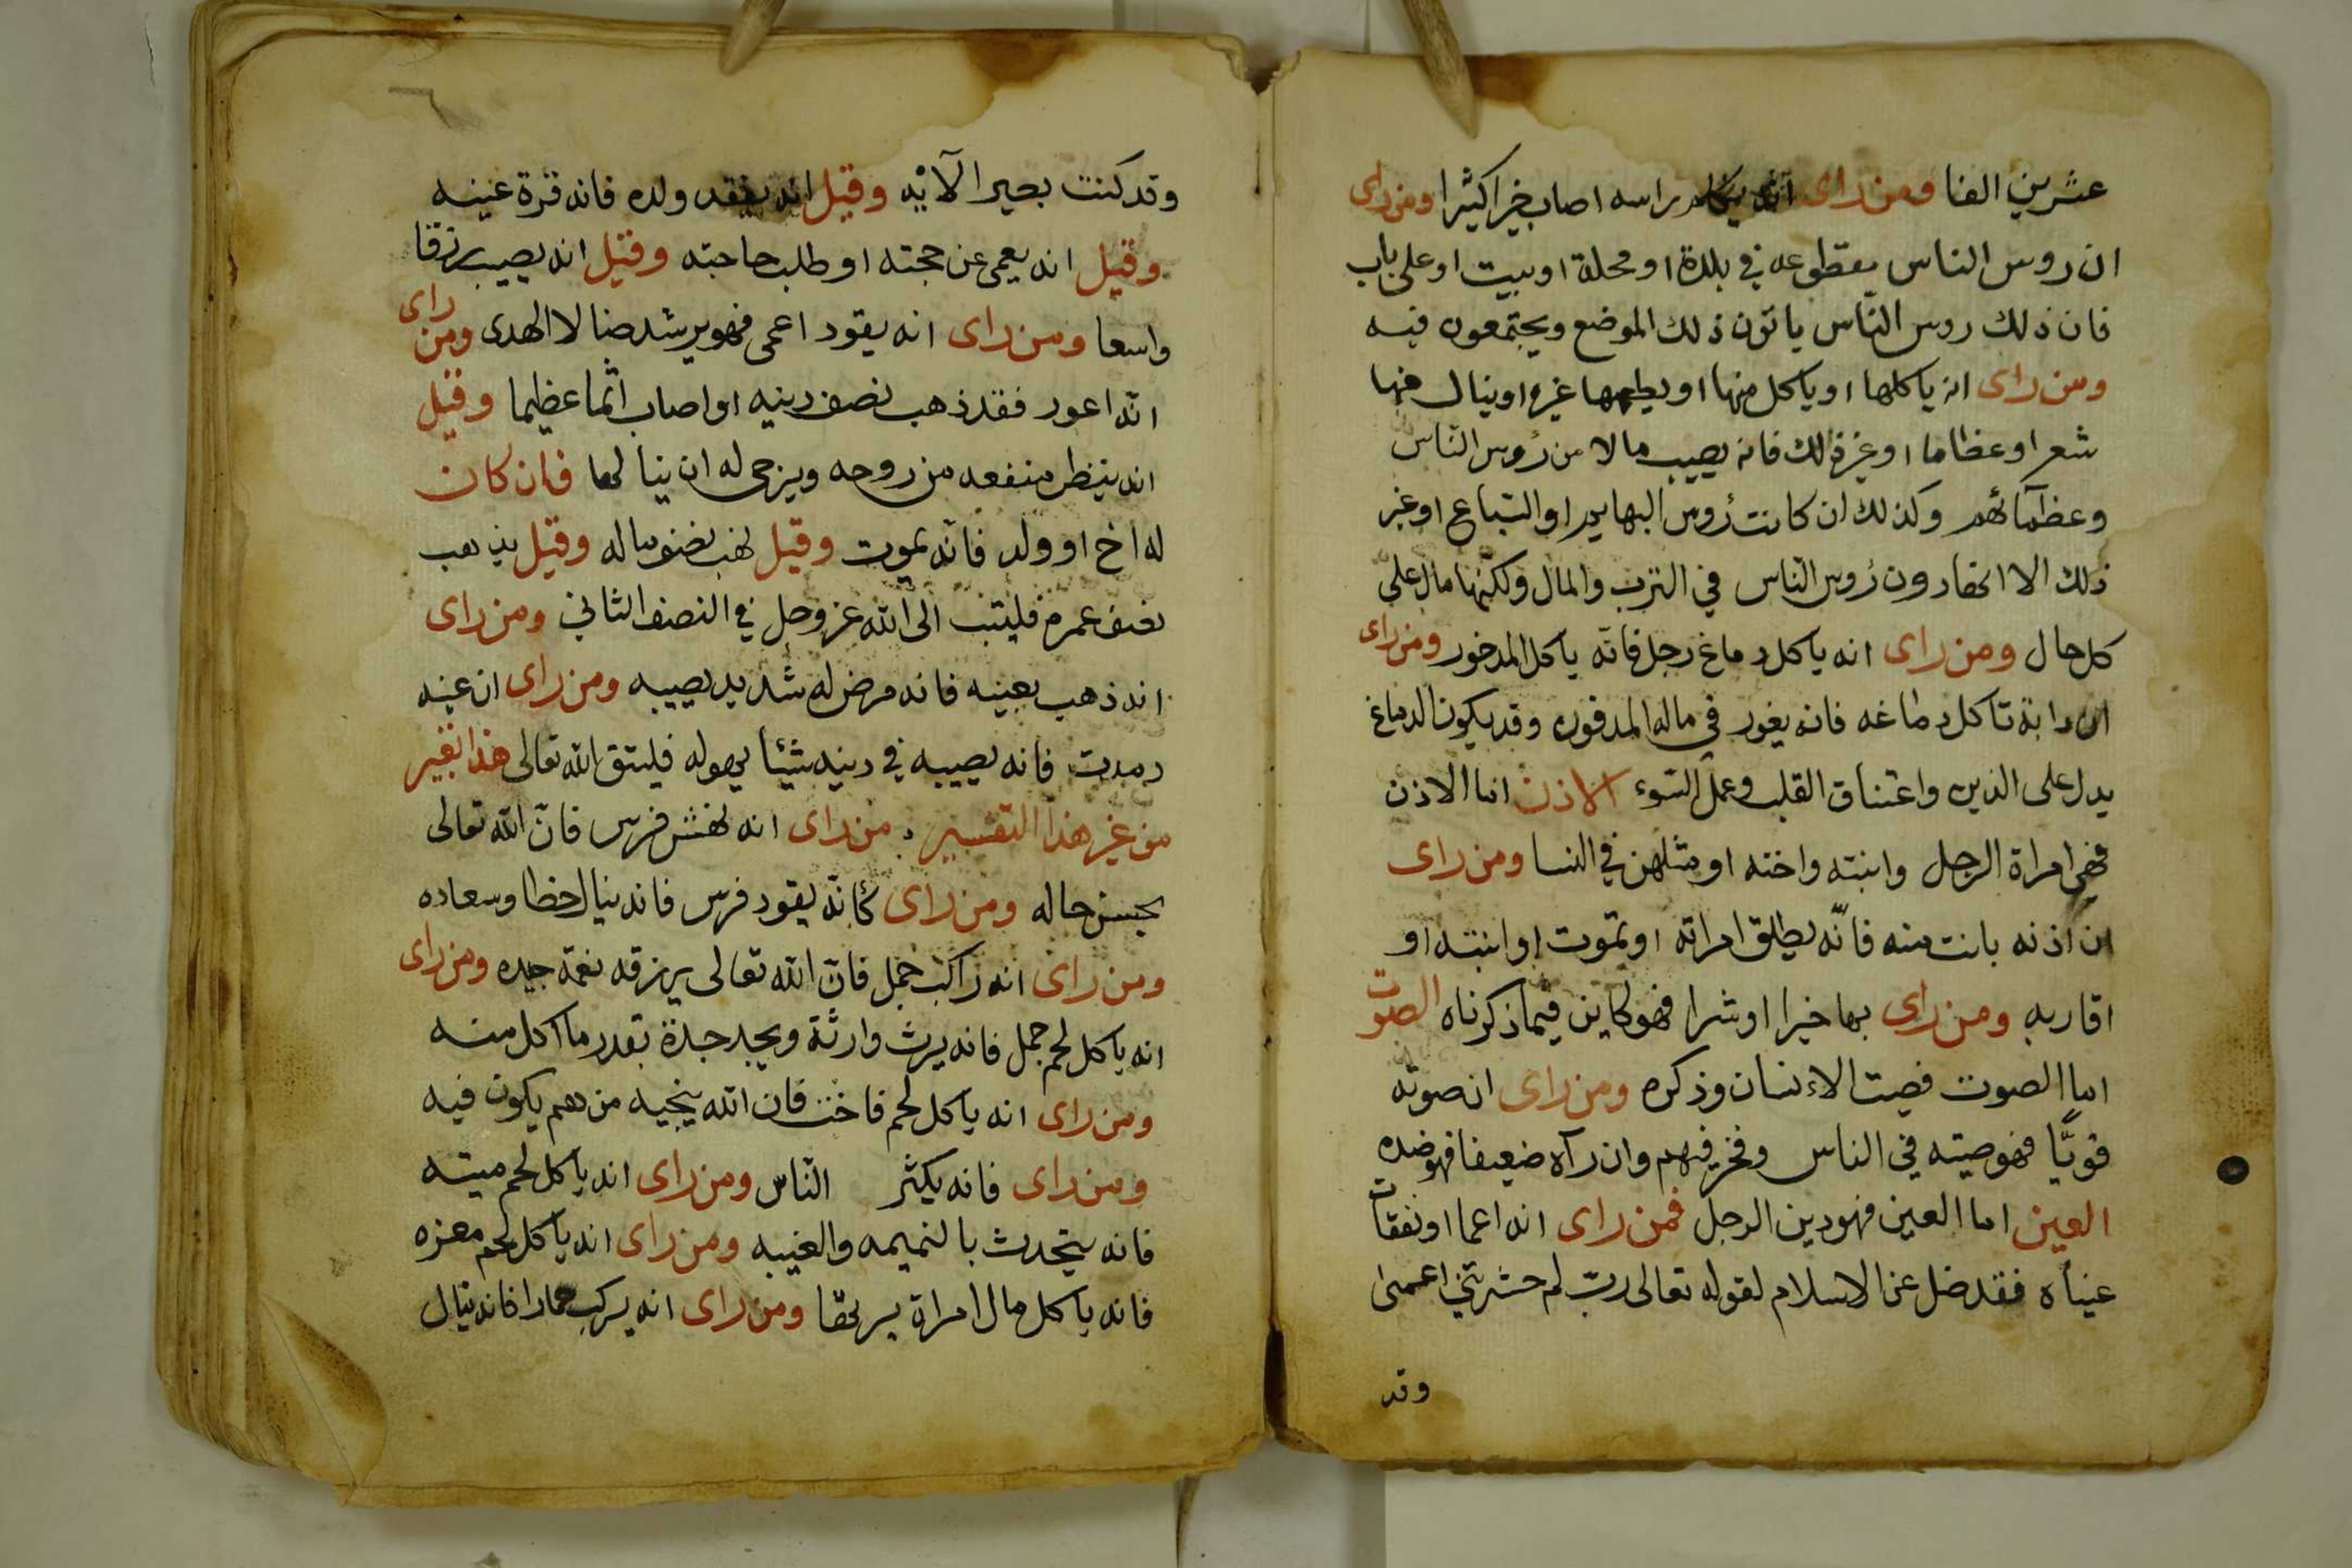 عشرين الفا ومن راى انه يكلم براسه اصاب خيرا كثيرا ومن راى
ان روس الناس مقطوعه في بلدة او محلة او بيت او على باب
فان ذلك روس الناس ياتون ذلك الموضع ويجتمعون فيه
ومن راى انه ياكلها او ياكل منها او يطعمها غيره او ينال منها
شعر او عظاما او غير ذلك فانه يصيب مالا من رُوس الناس
وعظمآئهم وكذلك ان كانت رُوس البهايم او السّباع او غير
ذلك الا انها دون رُوس النّاس في الترب والمال ولكنّها مال على
كل حال ومن راى انه ياكل دماغ رجل فانّه ياكل المدخور ومن راى
ان دابة تاكل دماغه فانه يغور في ماله المدفون وقد يكون الدماغ
يدل على الدين واعتناق القلب وعمل السّوء الاذن اما الاذن
فهي امراة الرجل وابنته واخته او مثلهن في النسا ومن راى
ان اذنه بانت منه فانّه يطلق امراته او تموت او ابنته او
اقاربه ومن راى بها خيرا او شرا فهو كاين فيما ذكرناه الصوت
اما الصوت فصيت الاءنسان وذكره ومن راى ان صوته
قويًّا فهو صيته في الناس وفخر فيهم وان رآه ضعيفا فهو ضده
العين اما العين فهو دين الرجل فمن راى انه اعما او نفقات
عيناه فقد ضل عن الاسلام لقوله تعالى ربّ لم حشرتني اعمى
وقد
وقد كنت بصيرا الآيْه وقيل انه يفقد ولده فانه قرة عينه
وقيل انه يعمى عن حجته او طلب حاجته وقيل انه يصيب رزقا
واسعا ومن راى انه يقود اعمى فهو يرشد ضالا الى الهدى ومن راى
انّه اعور فقد ذهب نصف دينه او اصاب اثما عظيما وقيل
انه ينتظر منفعه من روحه ويرجى له ان ينالها فان كان
له اخ او ولد فانّه يموت وقيل نصف ماله وقيل يذهب
نصف عمره فليتب الى الله عز وجل في النصف الثاني ومن راى
انه ذهب بعينيه فانه مرض له شديد يصيبه ومن راى ان عينه
رمدت فانه يصيبه في دينه شيئا يهوله فليتق الله تعالى هذا تغير
من غير هذا التفسير من راى انه نفش فرس فانّ الله تعالى
يحسن حاله ومن راى كانّه يقود فرس فانه ينال حظا وسعاده
ومن راى انه راكب جمل فانّ الله تعالى يرزقه نعمة جيده ومن راى
انه ياكل لحم جمل فانه يرث وارثة ويجد جدة بقدر ما اكل منه
ومن راى انه ياكل لحم فاخت فان الله ينجيه من هم يكون فيه
ومن راى فانه يكثر النّاس ومن راى انه ياكل لحم ميته
فانه يتحدث بالنميمه والغيبه ومن راى انه ياكل لحم معزه
فانه ياكل مال امراة ومن راى انه يركب حمارا فانه ينال